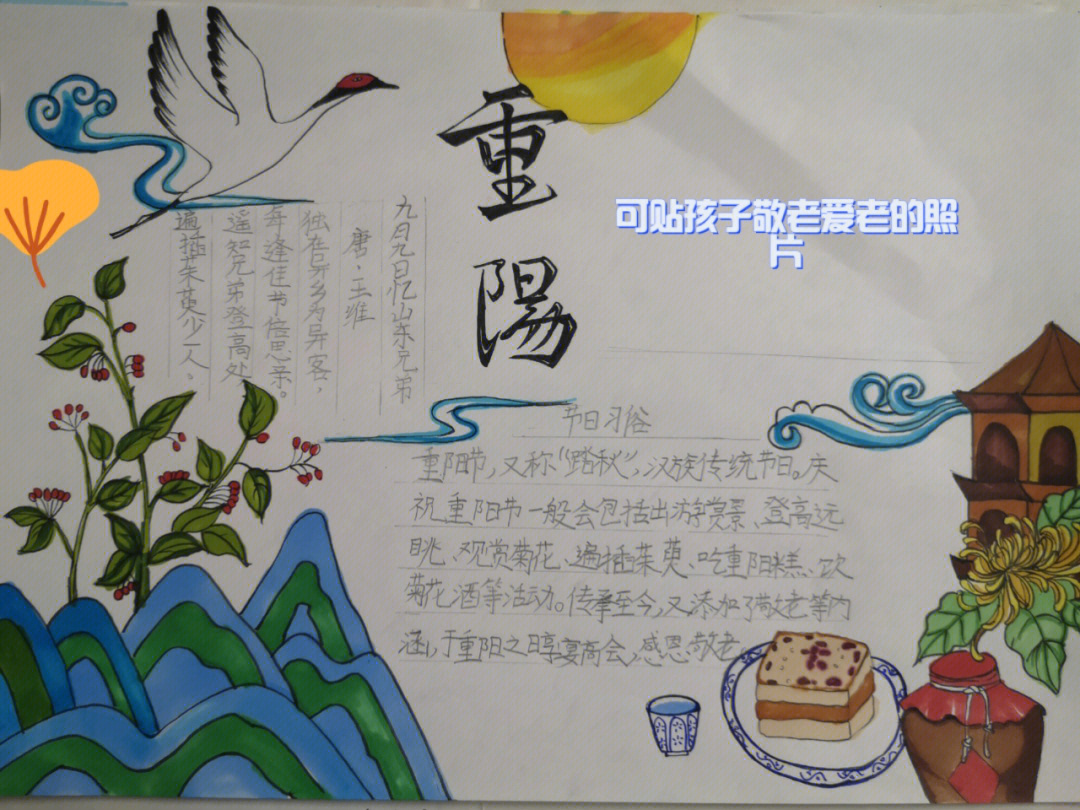 重
陽
可贴孩子敬老爱老的照
片
九月九日忆山东兄弟
唐·王维
独在异乡为异客，
每逢佳节倍思亲。
遥知兄弟登高处
遍插茱萸少一人。
节日习俗
重阳节，又称“踏秋”，汉族传统节日。庆
祝重阳节一般会包括出游赏景、登高远
眺、观赏菊花、遍插茱萸、吃重阳糕、饮
菊花酒等活动。传承至今，又添加了敬老等内
涵，于重阳之日享宴高会，感恩敬老